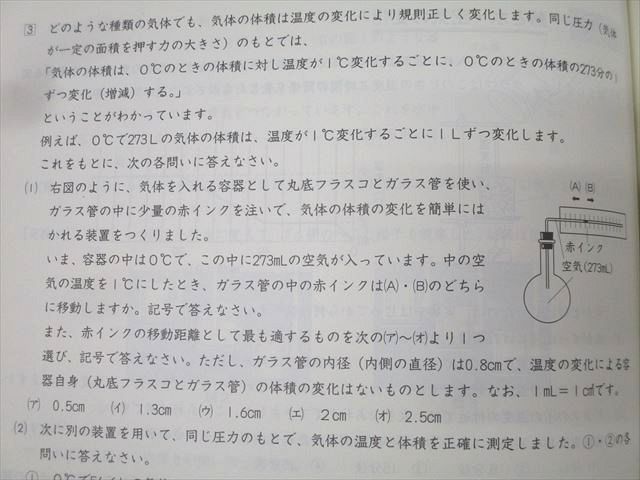 3 どのような種類の気体でも、気体の体積は温度の変化により規則正しく変化します。同じ圧力(気体
が一定の面積を押す力の大きさ)のもとでは、
「気体の体積は、0℃のときの体積に対し温度が1℃変化するごとに、0℃のときの体積の273分の1
ずつ変化(増減)する。」
ということがわかっています。
例えば、0℃で273Lの気体の体積は、温度が1℃変化するごとに1Lずつ変化します。
これをもとに、次の各問いに答えなさい。
(1) 右図のように、気体を入れる容器として丸底フラスコとガラス管を使い、
ガラス管の中に少量の赤インクを注いで、気体の体積の変化を簡単には
かれる装置をつくりました。
いま、容器の中は0℃で、この中に273mLの空気が入っています。中の空
気の温度を1℃にしたとき、ガラス管の中の赤インクは(A)・(B)のどちら
に移動しますか。記号で答えなさい。
また、赤インクの移動距離として最も適するものを次の(ア)~(オ)より1つ
選び、記号で答えなさい。ただし、ガラス管の内径(内側の直径)は0.8cmで、温度の変化による容
器自身(丸底フラスコとガラス管)の体積の変化はないものとします。なお、1mL=1cm³です。
(ア) 0.5cm (イ) 1.3cm (ウ) 1.6cm (エ) 2cm (オ) 2.5cm
(2) 次に別の装置を用いて、同じ圧力のもとで、気体の温度と体積を正確に測定しました。①・②の各
問いに答えなさい。
(A) (B)
赤インク
空気(273mL)